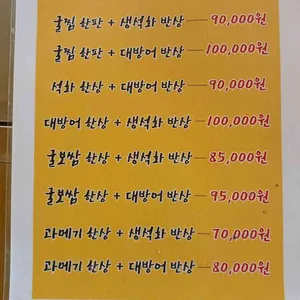 굴찜 한판 + 생석화 반상 — 90,000원
굴찜 한판 + 대방어 반상 — 100,000원
석화 한상 + 대방어 반상 — 90,000원
대방어 한상 + 생석화 반상 — 100,000원
굴보쌈 한상 + 생석화 반상 — 85,000원
굴보쌈 한상 + 대방어 반상 — 95,000원
과메기 한상 + 생석화 반상 — 70,000원
과메기 한상 + 대방어 반상 — 80,000원